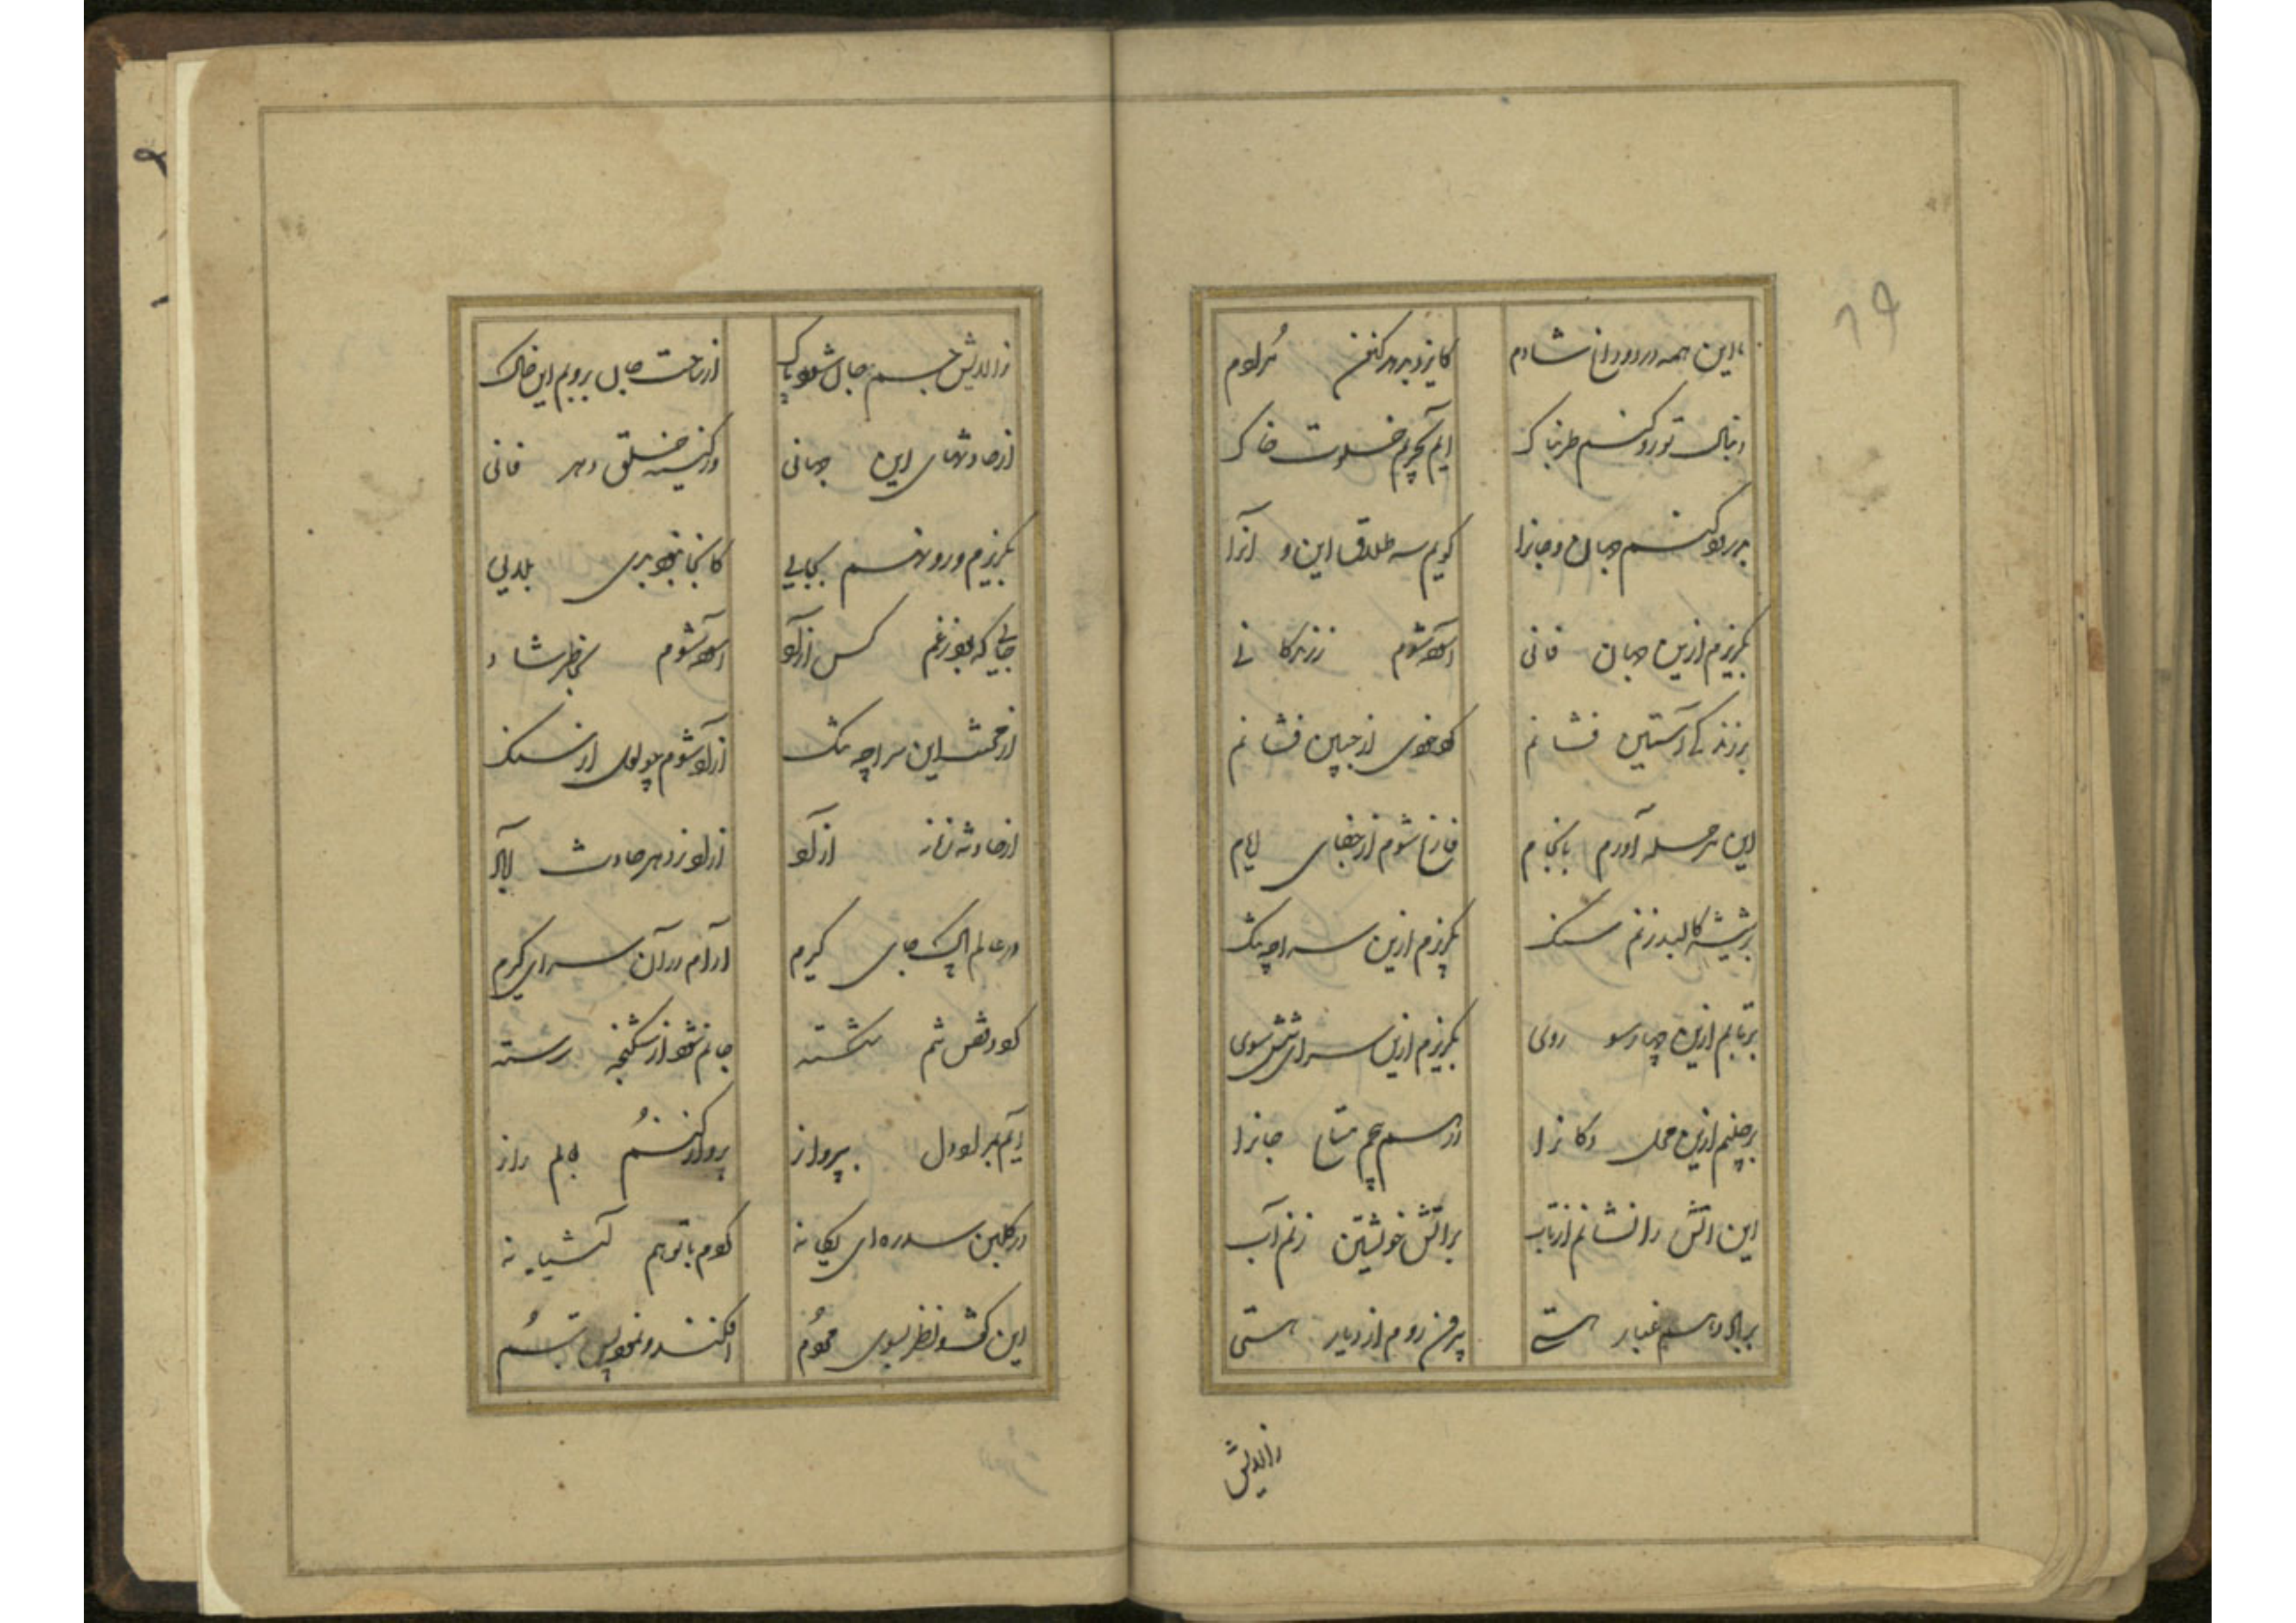 با این همه درد و داغ شادم کایزد بدهد کنون مرادم
دنبال تو رو کنم طربناک آیم بحریم خلوت خاک
بدرود کنم جهان و جانرا گویم سه طلاق این و آنرا
بگریزم ازین جهان فانی آسوده شوم ز زندگانی
بر زندگی آستین فشانم گرد خودی از جبین فشانم
این مرحله آورم بانجام فارغ شوم از جفای ایام
بر شیشه کالبد زنم سنگ بگریزم ازین سراچه تنگ
برتابم ازین چهارسو روی بگریزم ازین سرای شش سوی
برچینم ازین محل دکانرا درهم متاع جانرا
این آتش را نشانم از تاب بر آتش خویشتن زنم آب
بر باد دهم غبار هستی بیرون روم از دیار هستی
زالایش
زالایش جسم جان شود پاک از ساحت جان بروبم این خاک
از حادثهای این جهانی وز کینه خلق دهر فانی
بگریزم و رو نهم بجایی کانجا نبود بلایی
جایی که بود ز غم کس آزاد آسوده شوم بخاطر شاد
از وحشت این سراچه تنگ آزاد شوم چو لعل از سنگ
از حادثه زمانه آزاد آزاد ز دهر حادث آباد
در عالم پاک جای گیرم آرام در آن سرای گیرم
گردد قفس تنم شکسته جانم شود از شکنجه رسته
آیم بمراد دل بپرواز پرواز کنم بعالم راز
در گلبن سدره ای یگانه گردم با تو هم آشیانه
این گفت و نظر بسوی مردم افکند و نمود پس تبسم